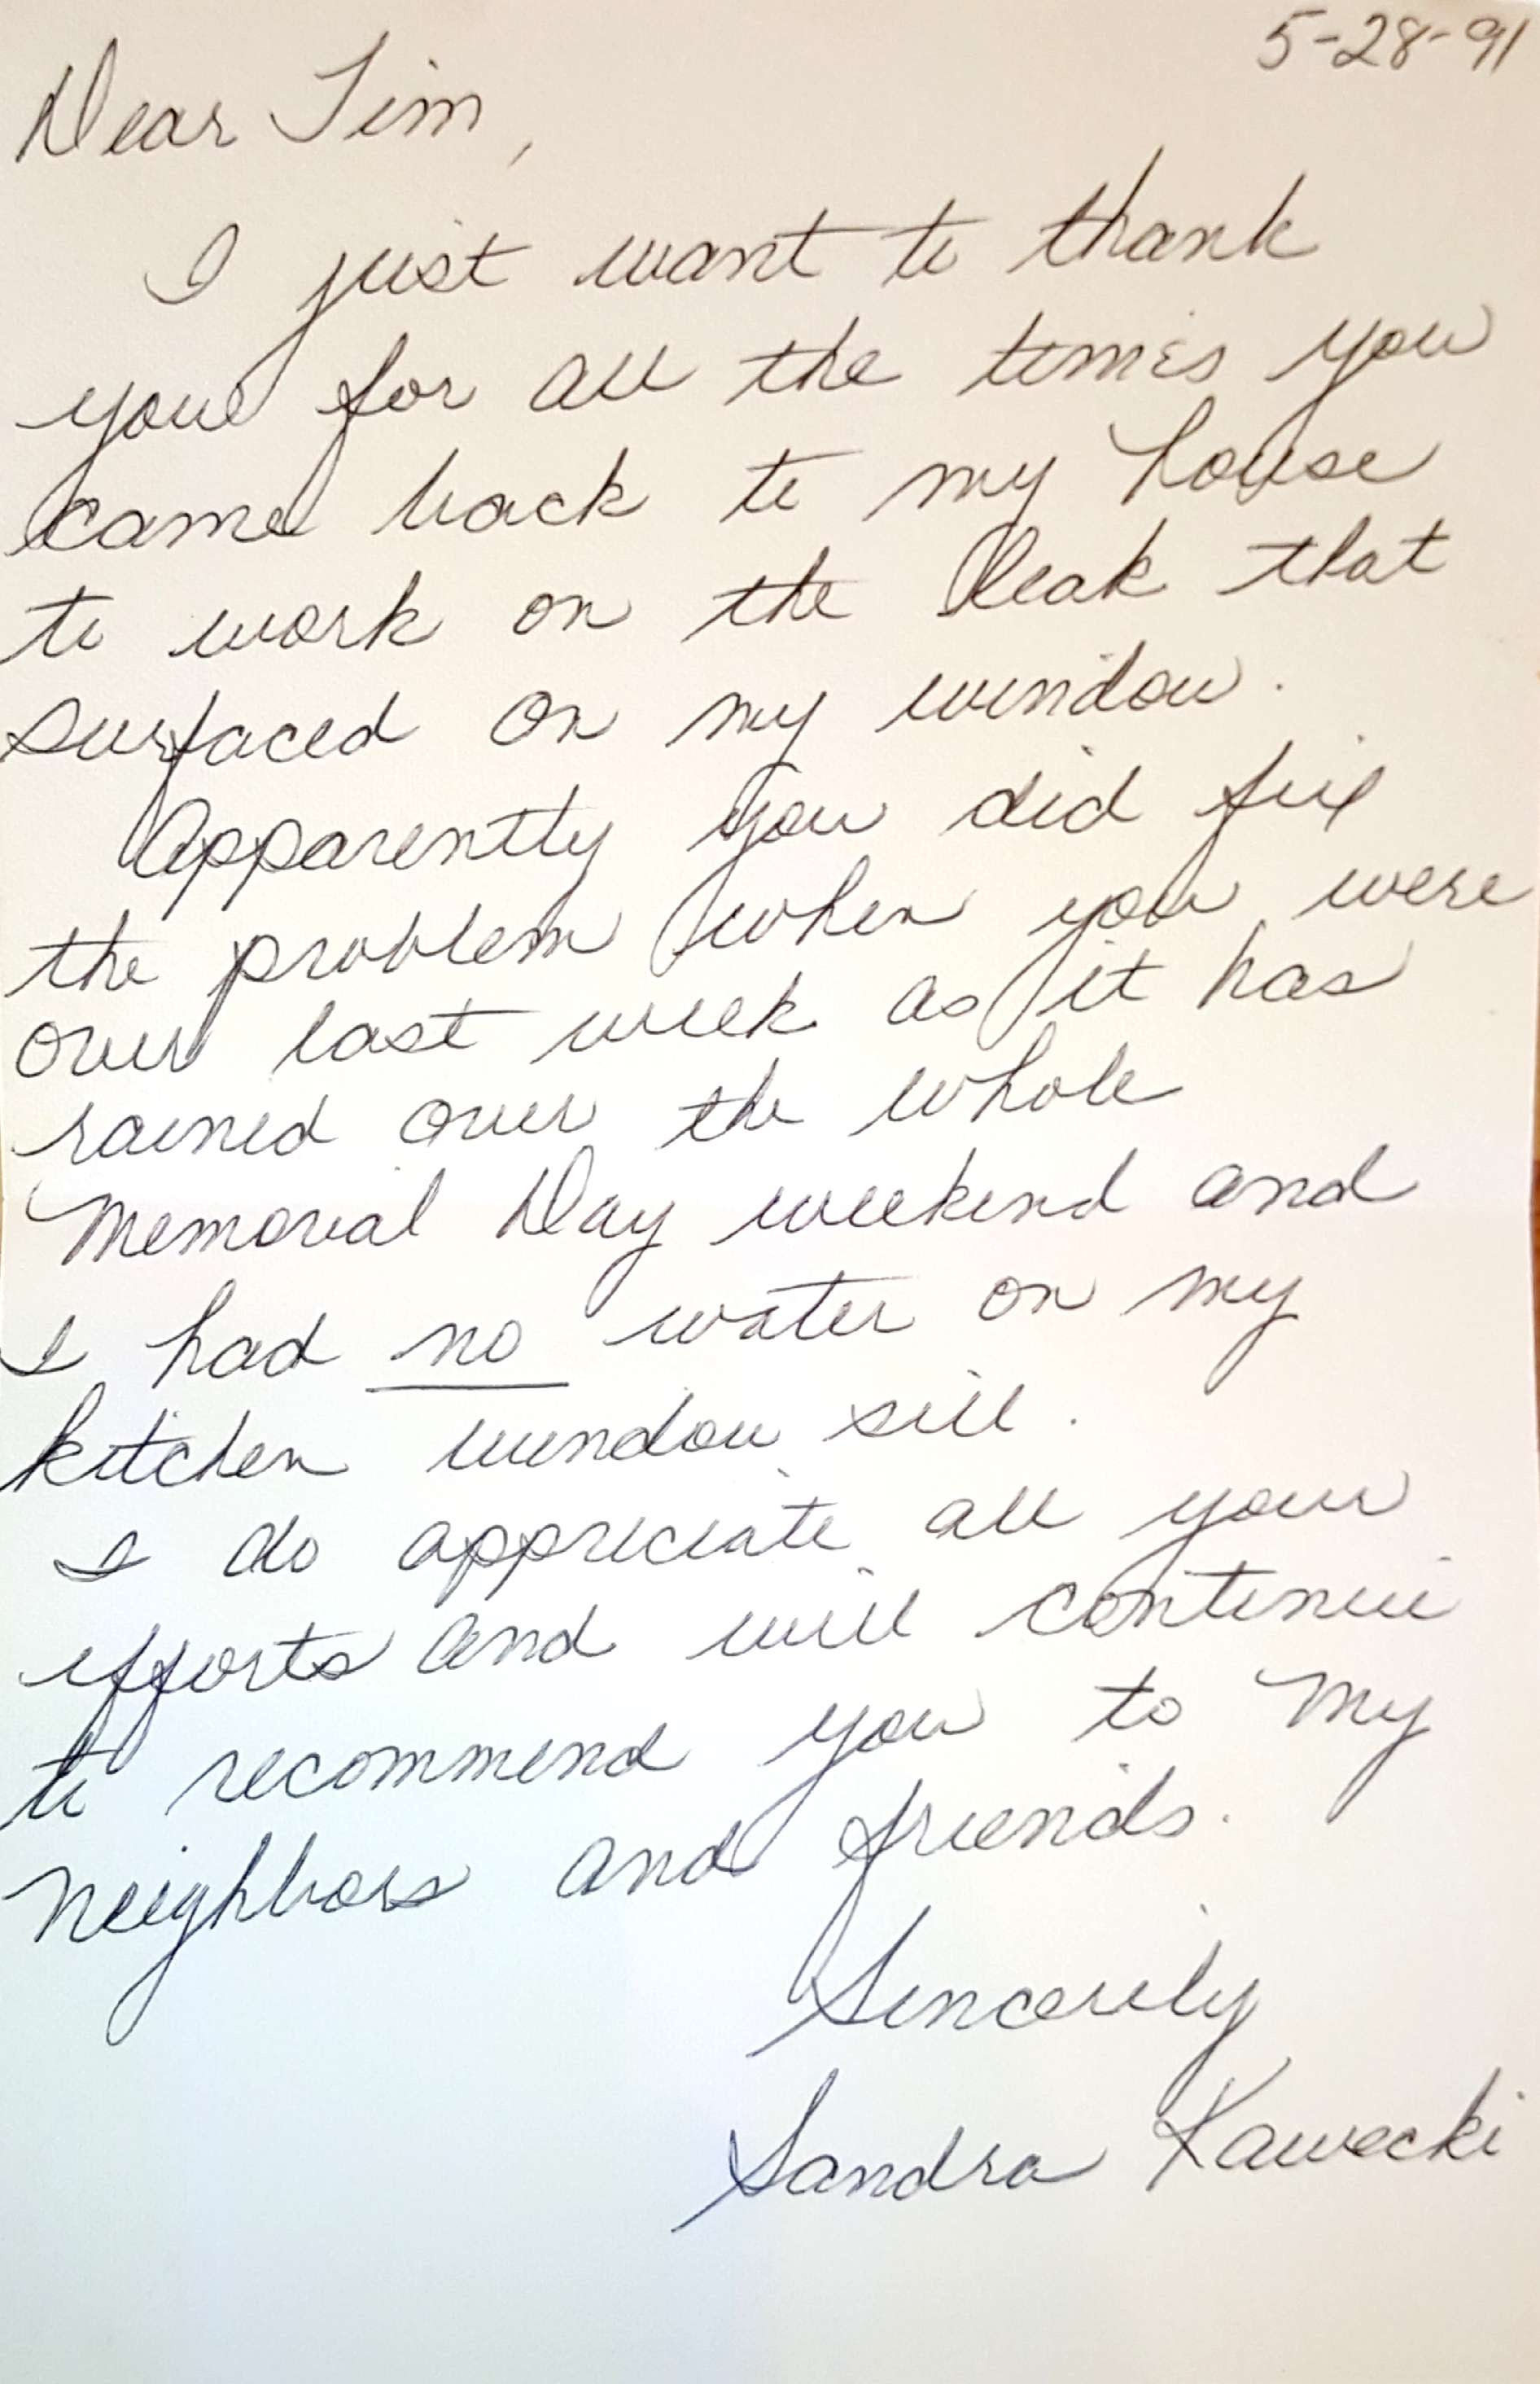 5-28-91
Dear Tim,
I just want to thank
you for all the times you
came back to my house
to work on the leak that
surfaced on my window.
Apparently you did fix
the problem when you were
over last week as it has
rained over the whole
Memorial Day weekend and
I had no water on my
kitchen window sill.
I do appreciate all your
efforts and will continue
to recommend you to my
neighbors and friends.
Sincerely
Sandra Kawecki